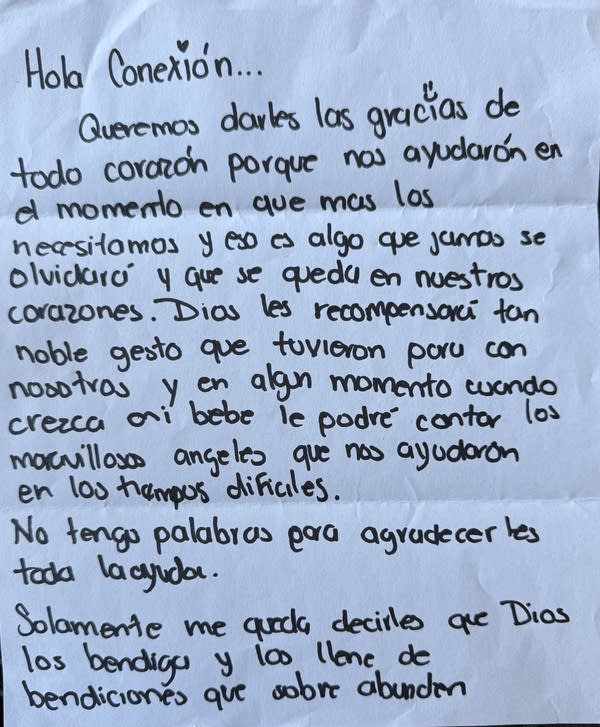 Hola Conexión...
Queremos darles las gracias de
todo corazón porque nos ayudarón en
el momento en que mas los
necesitamos y eso es algo que jamas se
olvidará y que se queda en nuestros
corazones. Dios les recompensará tan
noble gesto que tuvieron para con
nosotras y en algun momento cuando
crezca mi bebe le podré contar los
maravillosos angeles que nos ayudarón
en los tiempos dificiles.
No tengo palabras para agradecerles
toda la ayuda.
Solamente me queda decirles que Dios
los bendiga y los llene de
bendiciones que sobre abunden